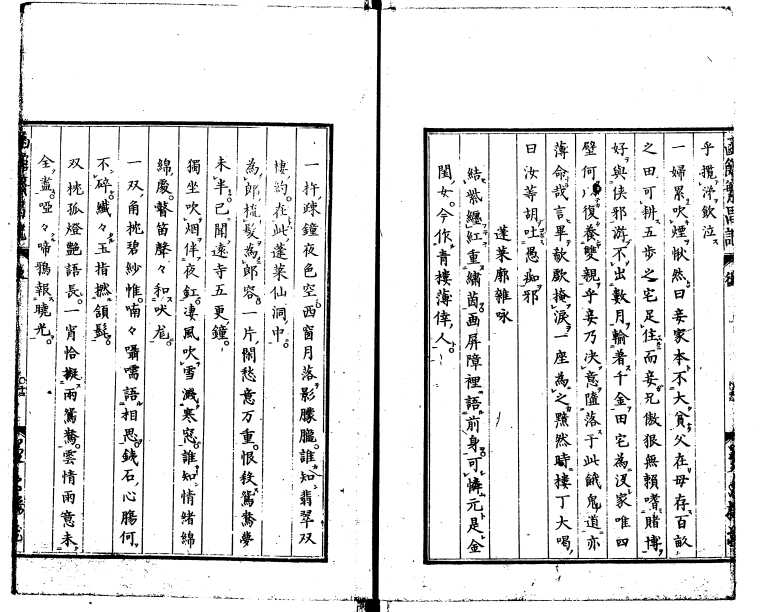 乎攬涕飲泣
一婦累吹煙愀然曰妾家本不大貧父在母存百畝
之田可耕五歩之宅足住而妾兄傲狠無賴嗜賭博
好與俠邪游不出數月輸著千金田宅為沒家唯四
壁何以復養雙親乎妾乃决意墮落于此餓鬼道亦
薄命哉言畢歔欷掩淚一座為之黯然時樓丁大喝
曰汝等胡吐愚痴邪
蓬萊廓雜咏
結紫纏紅重繡茵画屏障裡語前身可憐元是金
閨女今作青樓薄倖人
一杵疎鐘夜色空西窗月落影朦朧誰知翡翠双
棲約在此蓬萊仙洞中
為郎梳髮為郎容一片閑愁意万重恨殺鴛鴦夢
未半已聞遠寺五更鐘
獨坐吹烟伴夜釭凄風吹雪濺寒窓誰知情緒綿
綿處瞽笛聲々和吠尨
一双角枕碧紗帷喃々囁嚅語相思鐵石心膓何
不碎纖々玉指撚頷髭
双枕孤燈艶語長一宵恰擬兩鴛鴦雲情雨意未
全盡啞々啼鴉報曉光